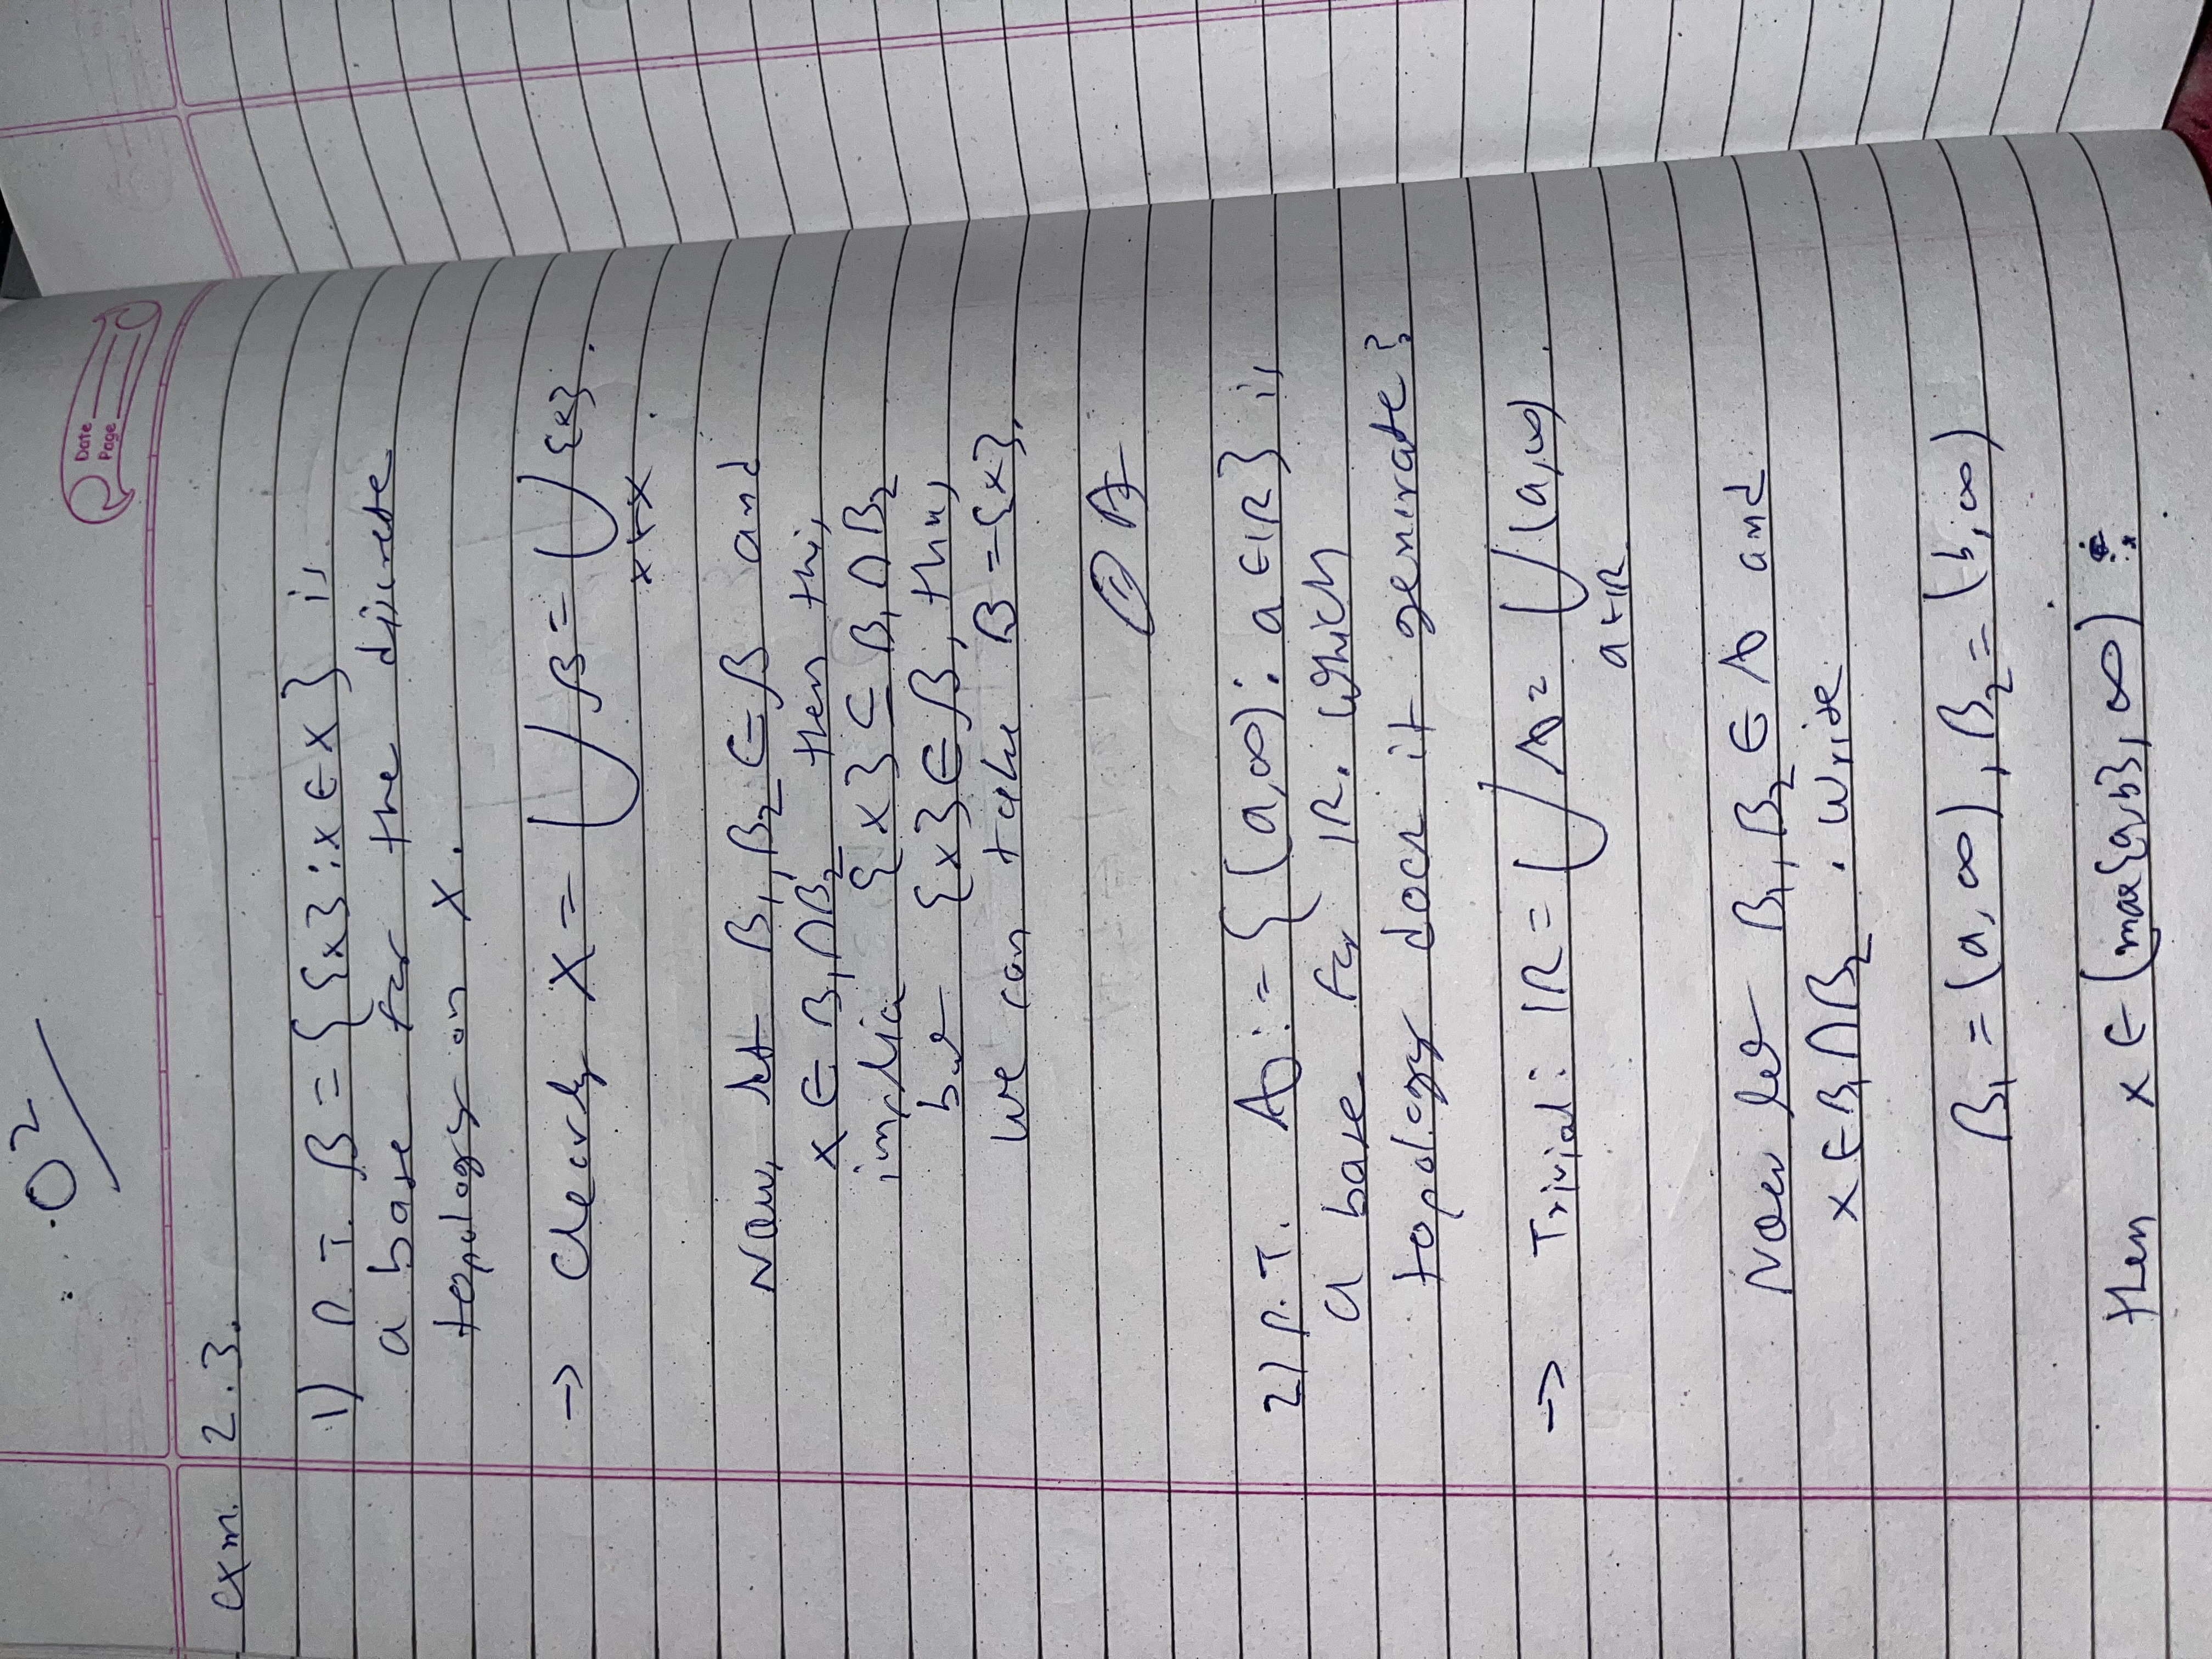 02
Date
Page
exm. 2.3.
1) P.T. β = { {x} : x ∈ X } is
a base for the discrete
topology on X.
→ Clearly X = ⋃ β = ⋃ {x}.
x ∈ X
Now, let B₁, B₂ ∈ β and
x ∈ B₁ ∩ B₂ then this
implies {x} ⊆ B₁ ∩ B₂
but {x} ∈ β, thus
we can take B = {x}.
2) P.T. 𝒮 := { (a, ∞) : a ∈ ℝ } is
a base for ℝ. Which
topology does it generate?
→ Trivial: ℝ = ⋃ 𝒮 = ⋃ (a, ∞).
a ∈ ℝ
Now let B₁, B₂ ∈ 𝒮 and
x ∈ B₁ ∩ B₂. Write
B₁ = (a, ∞), B₂ = (b, ∞)
then x ∈ (max{a,b}, ∞)